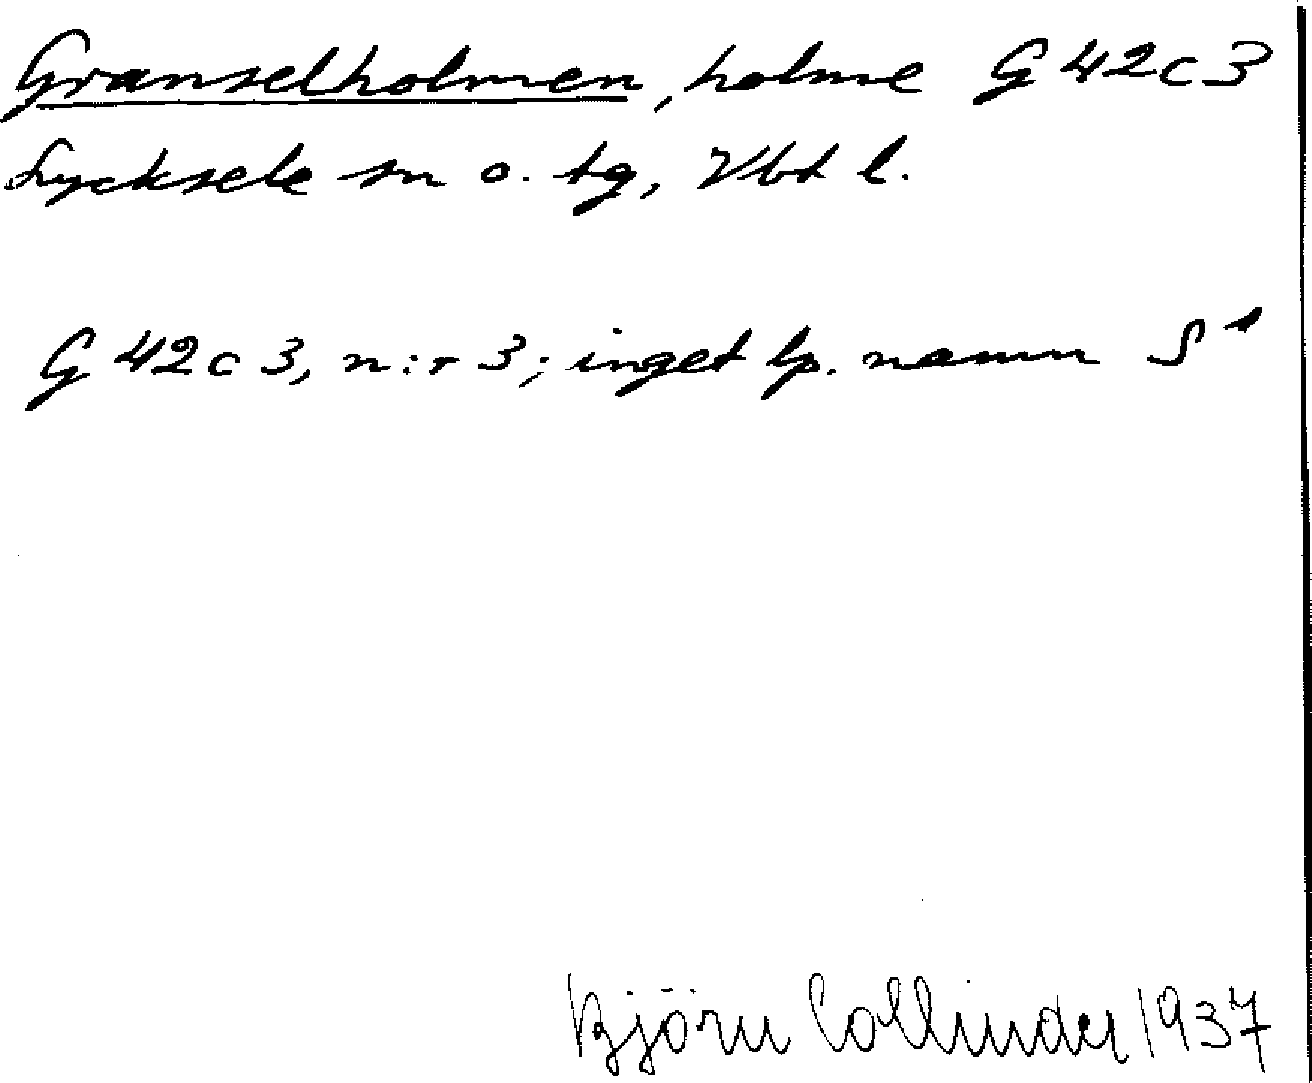 Granselholmen, holme G 42 c 3
Lycksele sn o. tg, Vbt l.
G 42 c 3, n:r 3; inget lp. namn S¹
Björn Collinder 1937